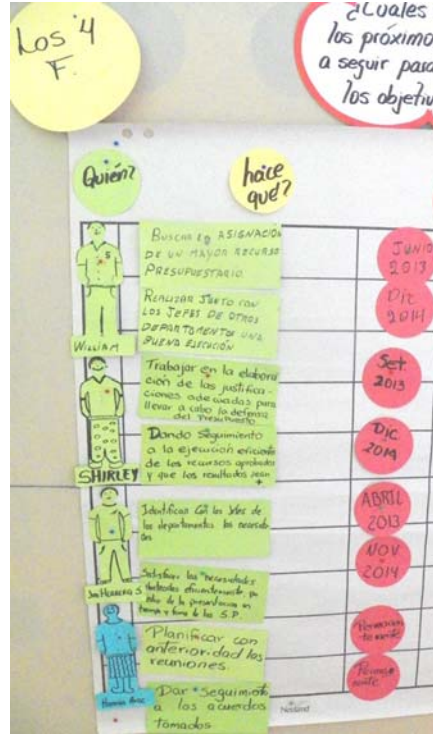 Los '4
F.
¿Cuales
los próximo
a seguir para
los objetiv
Quién?
hace
qué?
BUSCAR ASIGNACIÓN
DE UN MAYOR RECURSO
PRESUPUESTARIO.
JUNIO
2013
REALIZAR JUNTO CON
LOS JEFES DE OTROS
DEPARTAMENTOS UNA
BUENA EJECUCIÓN
Dic
2014
WILLIAM
Trabajar en la elabora
ción de las justifica-
ciones adecuadas para
llevar a cabo la defensa
del Presupuesto
Set.
2013
Dando Seguimiento
a la ejecución eficiente
de los recursos aprobados
y que los resultados sean
+
Dic
2014
SHIRLEY
Identificar con los Jefes de
los departamentos las necesida-
des
ABRIL
2013
Satisfacer las necesidades
eficientemente, por
de la presentación en
tiempo y forma de las S.P.
NOV.
2014
HERRERA S.
Planificar con
anterioridad las
reuniones.
Dar seguimiento
a los acuerdos
tomados